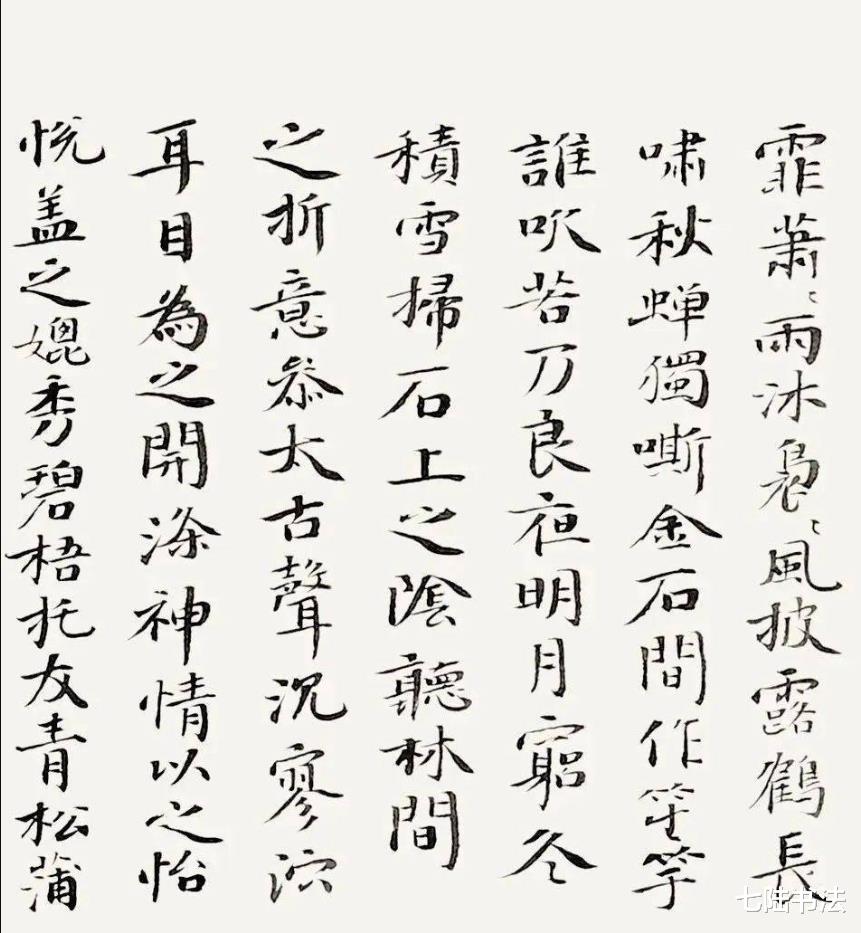 霏蕭〻雨沐裊〻風披露鶴長
嘯秋蝉獨嘶金石間作笙竽
誰吹若乃良夜明月窮冬
積雪掃石上之陰聽林間
之折意參太古聲沉寥泬
耳目為之開滌神情以之怡
悅盖之媲秀碧梧托友青松蒲
七陆书法